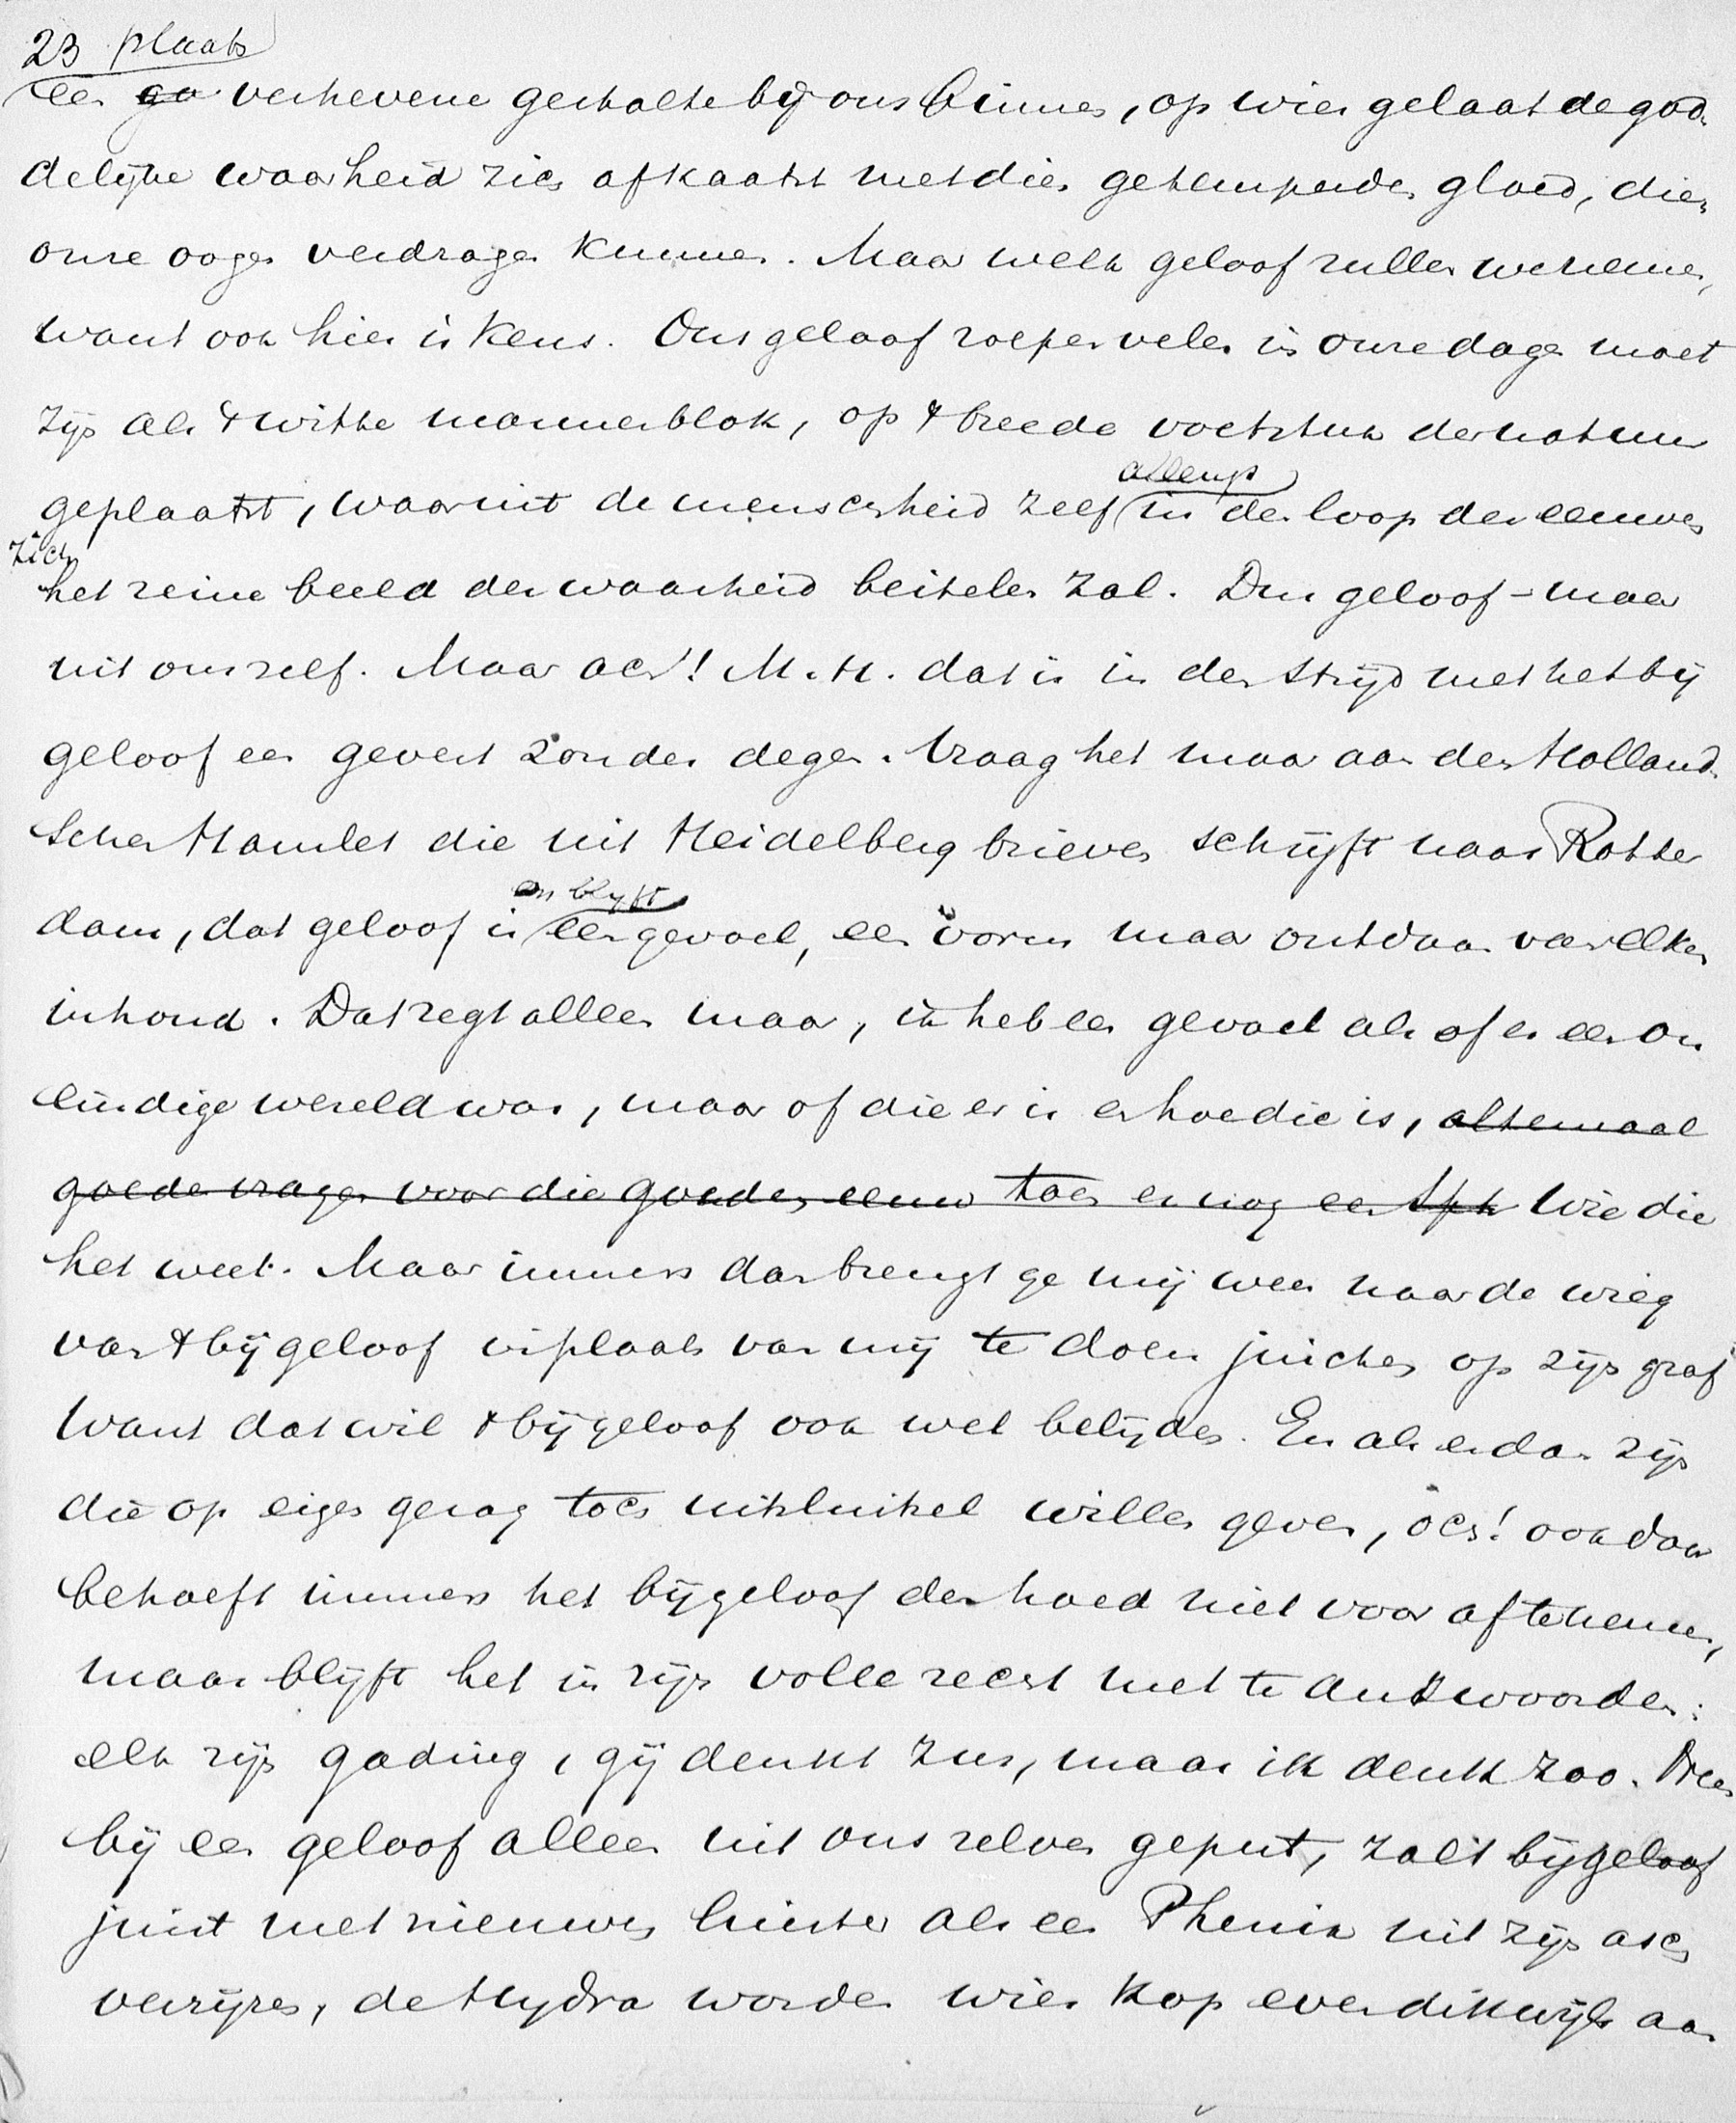 23 plaats
een ~~go~~ verhevene gestalte bij ons binnen, op wier gelaat de god-
delijke waarheid zich afkaatst met dien getemperden gloed, dien
onze oogen verdragen kunnen. Maar welk geloof zullen we nemen,
want ook hier is keus. Ons geloof roepen velen in onze dagen moet
zijn als 't witte marmerblok, op 't breede voetstuk der natuur
allengs
geplaatst, waaruit de menschheid zelf in den loop der eeuwen
zich
het reine beeld der waarheid beitelen zal. Dus geloof - maar
uit ons zelf. Maar ach! M. H. dat is in den strijd met het bij
geloof een gevest zonder degen. Vraag het maar aan den Holland-
schen Hamlet die uit Heidelberg brieven schrijft naar Rotter
en blijft
dam, dat geloof is een gevoel, een vorm maar ontdaan van elken
inhoud. Dat zegt alleen maar, ik heb een gevoel als of er een on
eindige wereld was, maar of die er is en hoe die is, ~~altemaal~~
~~goede vragen voor die goede, eeuw toen er nog een Sph~~ Wie die
het weet. Maar immers dan brengt ge mij weer naar de wieg
van 't bijgeloof in plaats van mij te doen juichen op zijn graf
Want dat wil 't bijgeloof ook wel belijden. En als er dan zijn
die op eigen gezag toch uitsluitsel willen geven, och! ook daar
behoeft immers het bijgeloof den hoed niet voor af te nemen,
maar blijft het in zijn volle recht met te antwoorden:
elk zijn gading, gij denkt zus, maar ik denk zoo. Neen
bij een geloof alleen uit ons zelven geput, zal 't bijgeloof
juist met nieuwen luister als een Phenix uit zijn asch
verrijzen, de Hydra worden wier kop evendikwijls aan